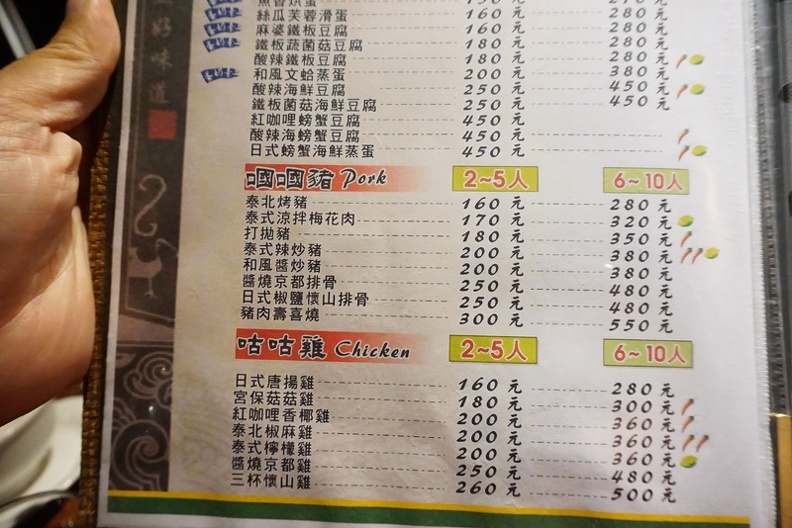 好味道
絲瓜芙蓉滑蛋 160元 280元
麻婆鐵板豆腐 160元 280元
鐵板蔬菌菇豆腐 180元 280元
酸辣鐵板豆腐 180元 280元
和風文蛤蒸蛋 200元 380元
酸辣海鮮豆腐 250元 450元
鐵板菌菇海鮮豆腐 250元 450元
紅咖哩螃蟹豆腐 450元
酸辣海螃蟹豆腐 450元
日式螃蟹海鮮蒸蛋 450元
嘓嘓豬 Pork 2~5人 6~10人
泰北烤豬 160元 280元
泰式涼拌梅花肉 170元 320元
打拋豬 180元 350元
泰式辣炒豬 200元 380元
和風醬炒豬 200元 380元
醬燒京都排骨 250元 480元
日式椒鹽懷山排骨 250元 480元
豬肉壽喜燒 300元 550元
咕咕雞 Chicken 2~5人 6~10人
日式唐揚雞 160元 280元
宮保菇菇雞 180元 300元
紅咖哩香椰雞 200元 360元
泰北椒麻雞 200元 360元
泰式檸檬雞 200元 360元
醬燒京都雞 250元 480元
三杯懷山雞 260元 500元